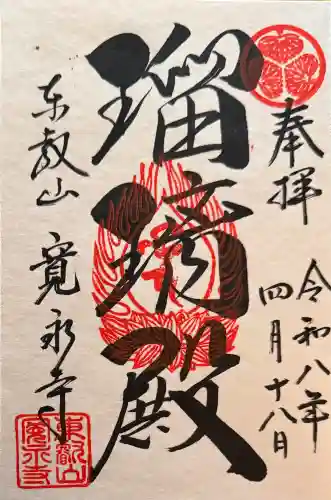 奉拝
令和八年
四月十八日
瑠璃殿
东叡山
寛永寺
東叡山
寛永寺